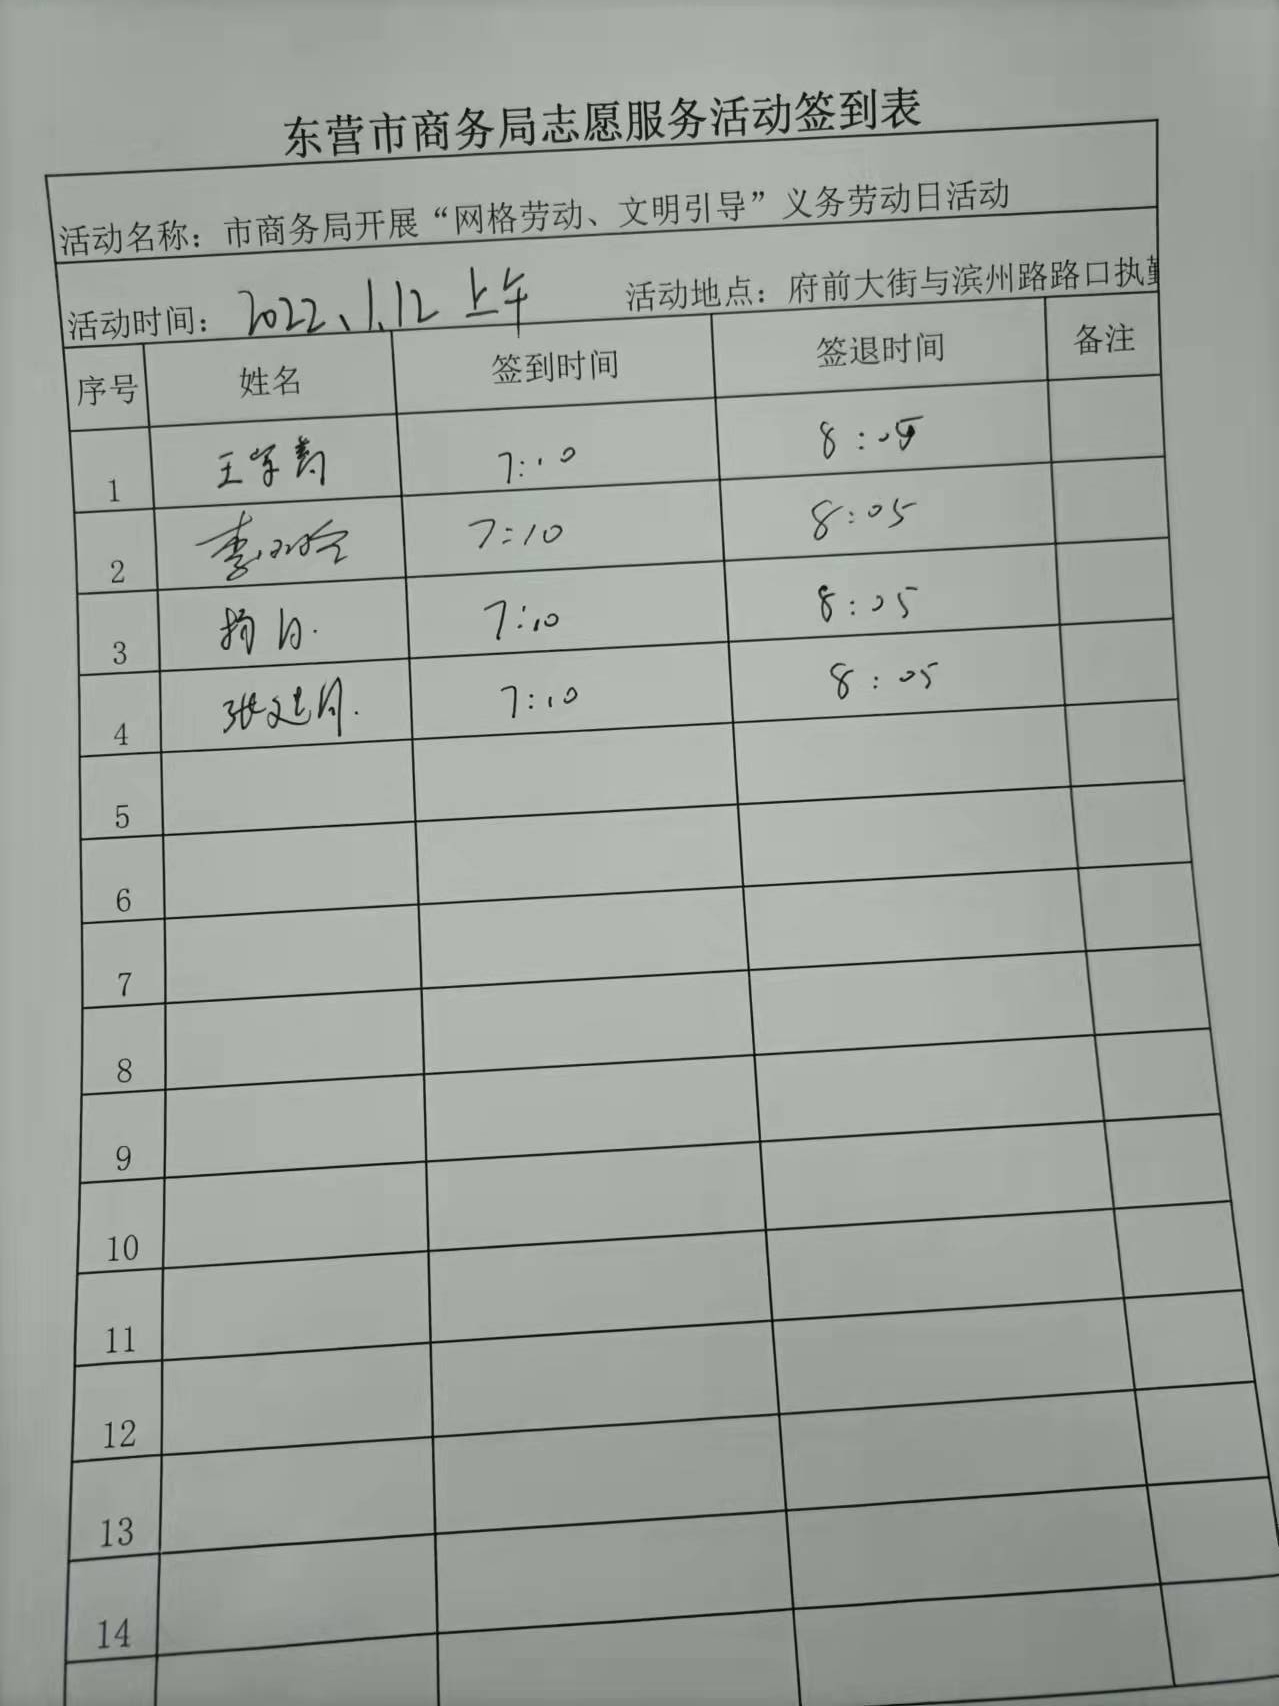 东营市商务局志愿服务活动签到表
活动名称：市商务局开展“网格劳动、文明引导”义务劳动日活动
活动时间：2022、1.12 上午 活动地点：府前大街与滨州路路口执勤
序号 姓名 签到时间 签退时间 备注
1 王 7:10 8:05
2 李 7:10 8:05
3 杨 7:10 8:05
4 张建 7:10 8:05
5
6
7
8
9
10
11
12
13
14